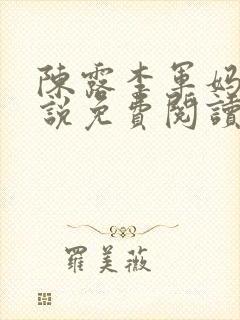 陳露李軍媽
說免費閱讀
羅美薇